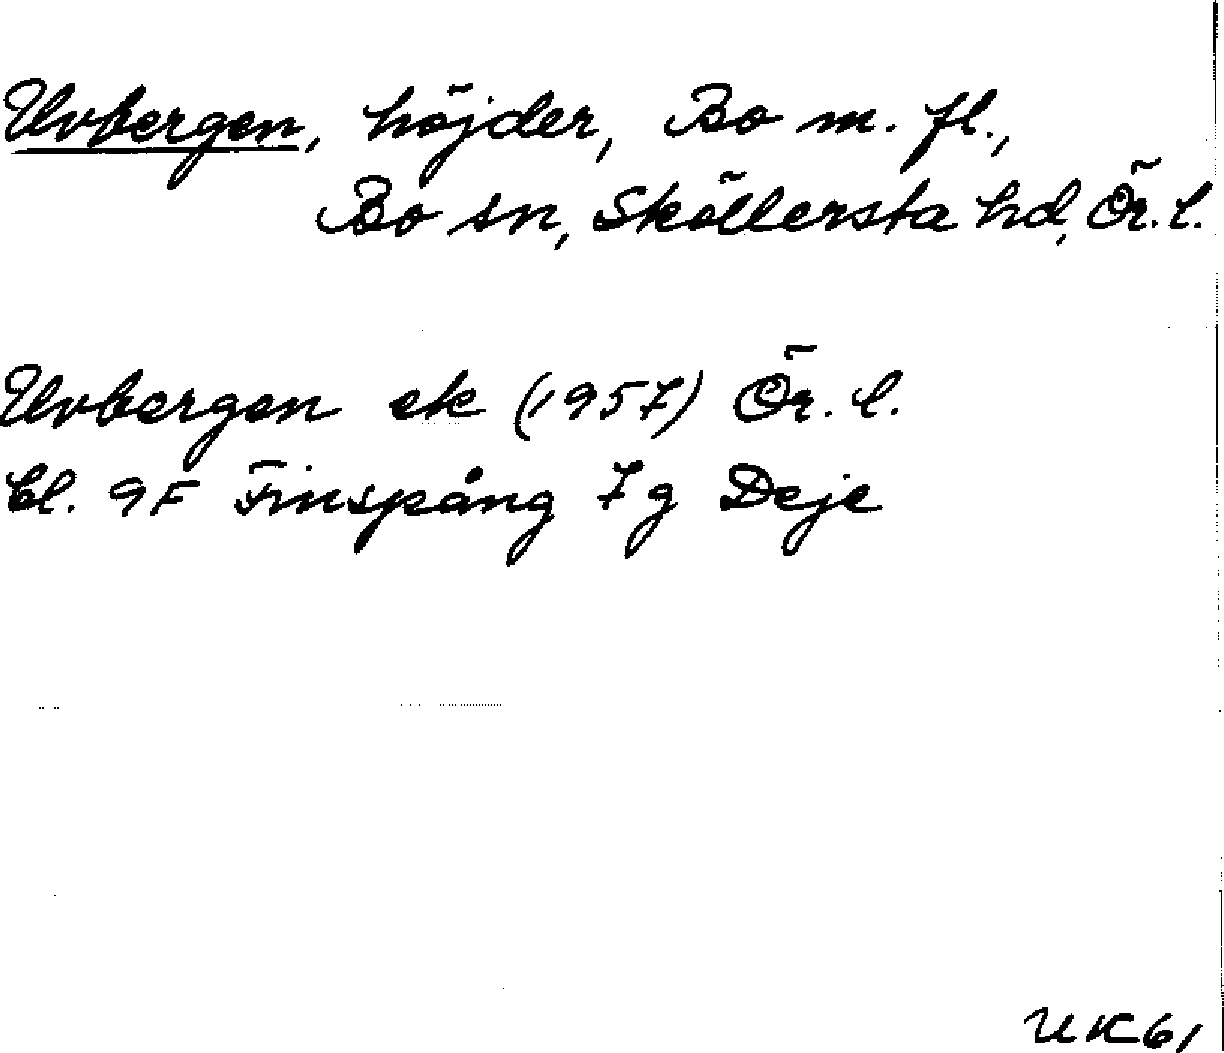 Uvbergen, höjder, Bo m. fl.,
Bo sn, Sköllersta hd, Ör. l.
Uvbergen ek (1957) Ör. l.
bl. 9F Finspång 7g Deje
UK61